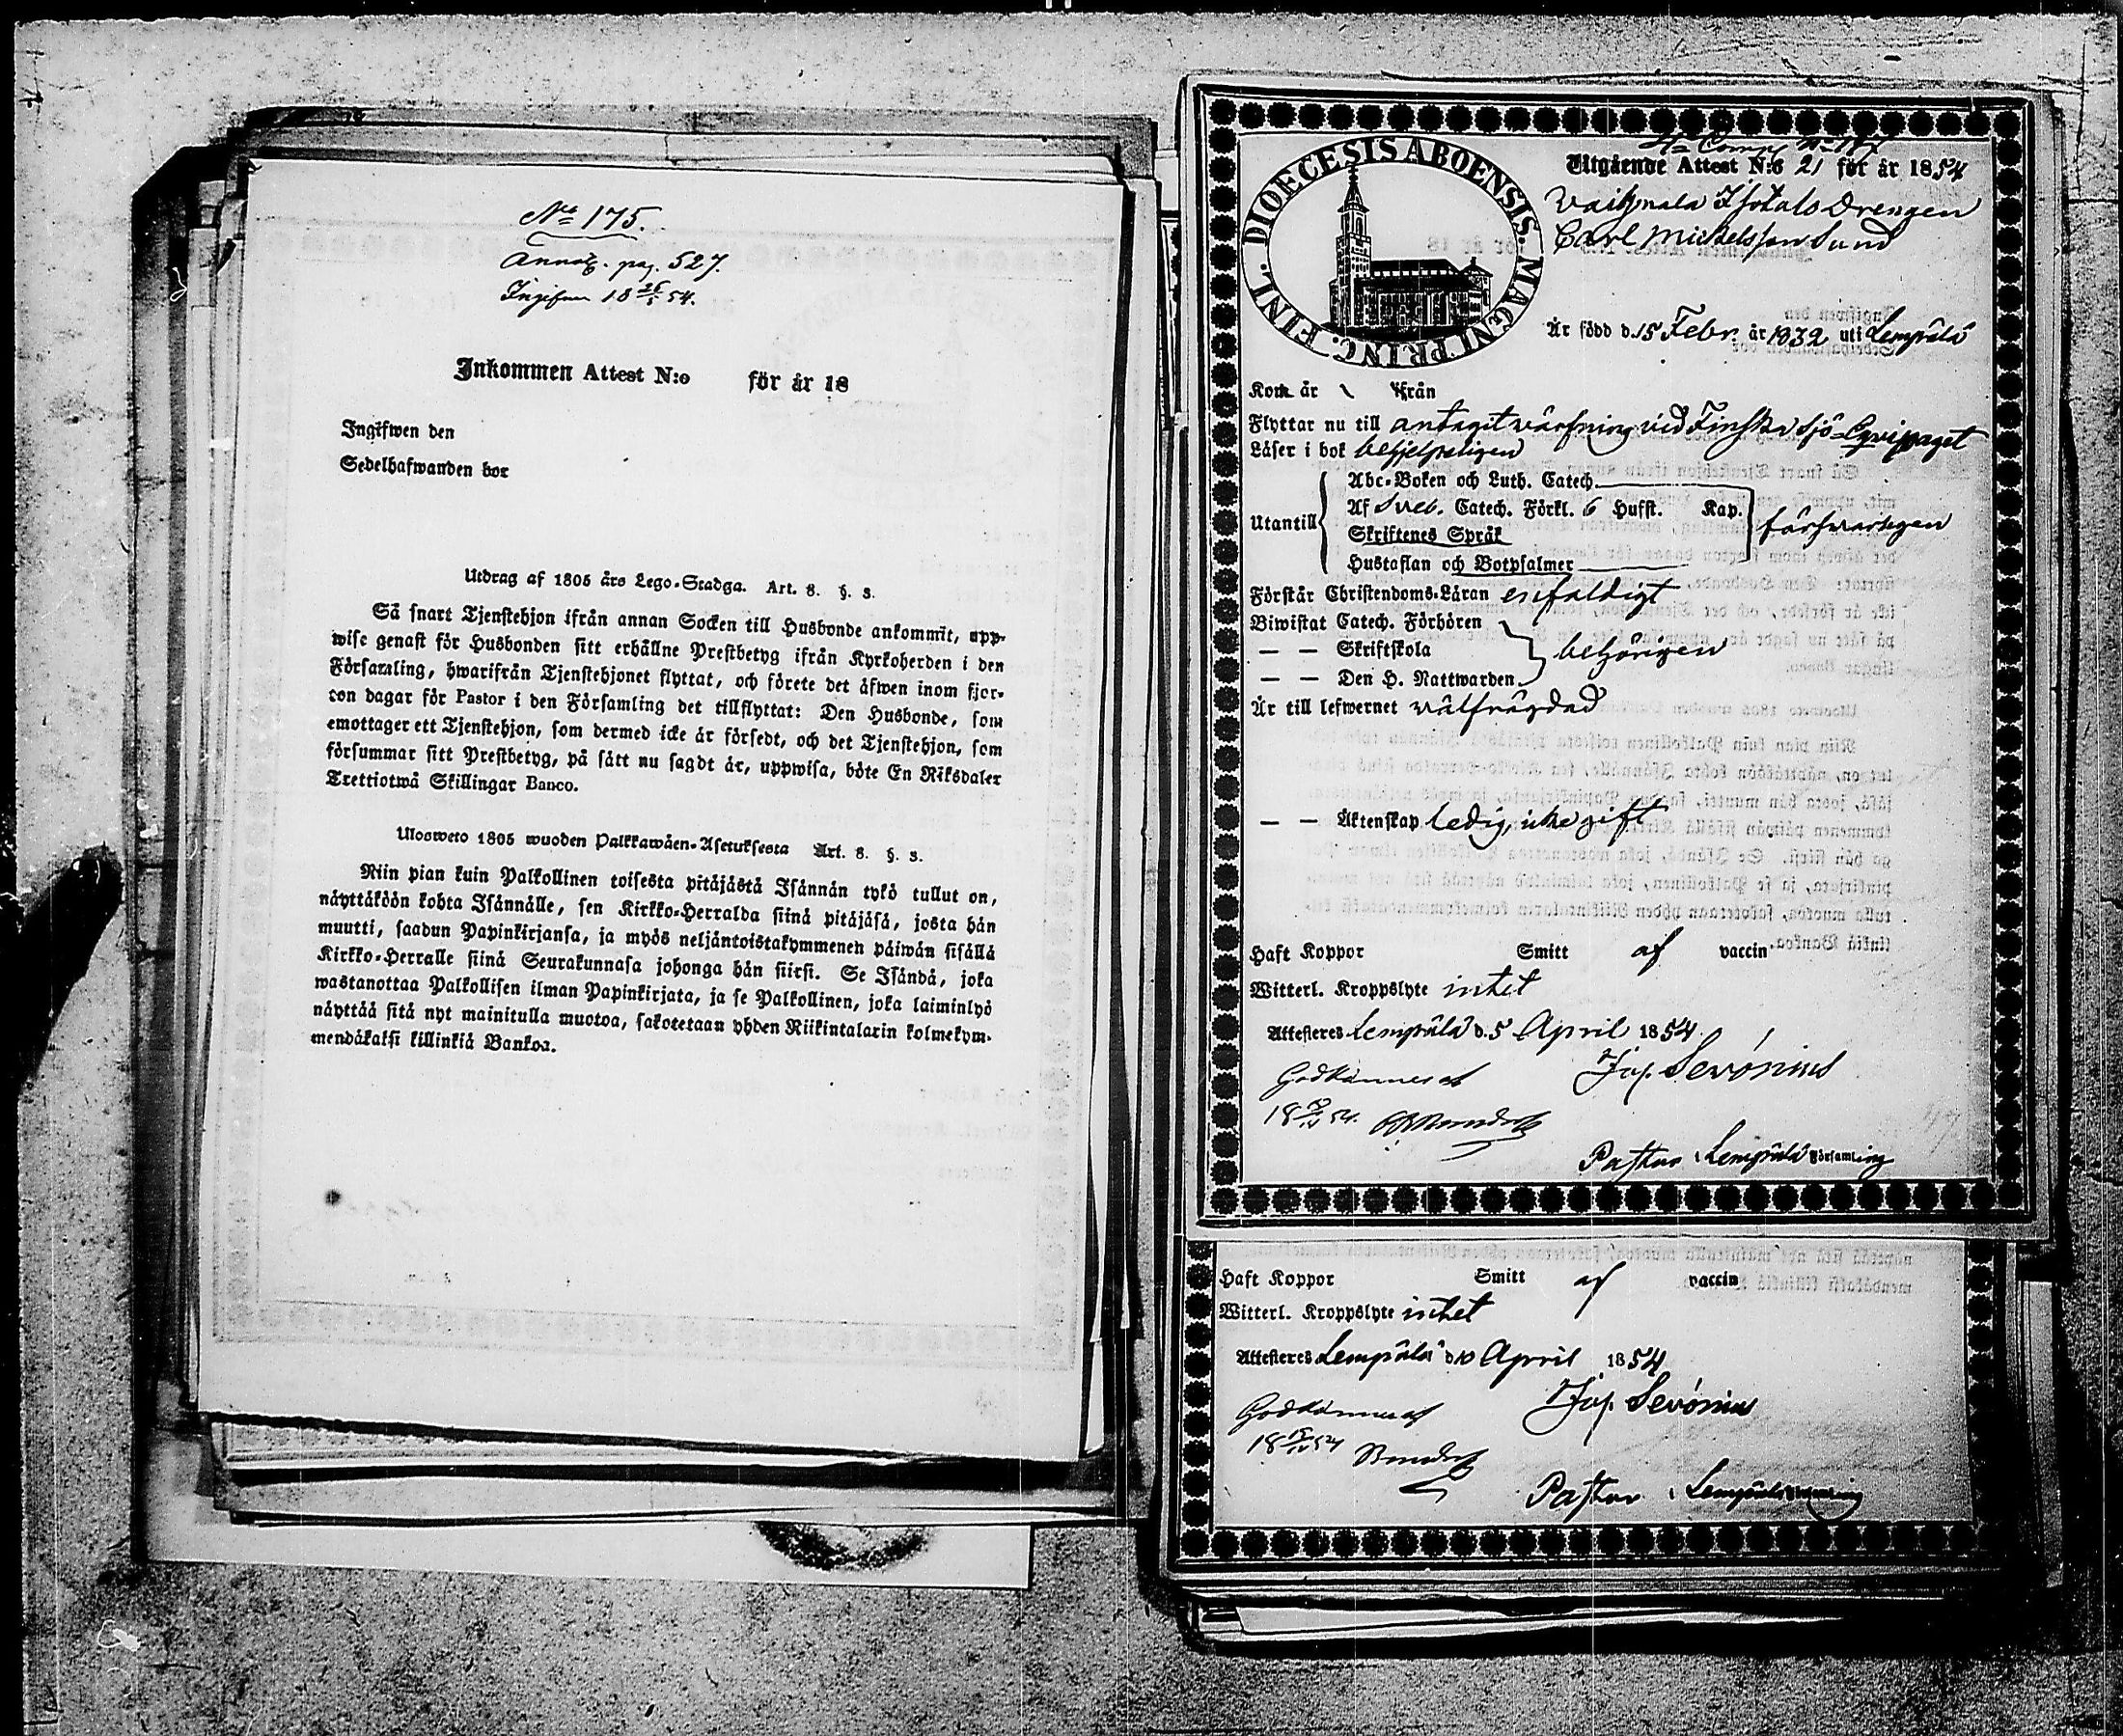 No 175.
Annot. pag. 527.
18 26/5 54.
Inkommen Attest N:o för år 18
Ingifwen den
Sedelhafwanden bor
Utdrag af 1805 års Lego-Stadga. Art. 8. §. 3.
Så snart Tjenstehjon ifrån annan Socken till Husbonde ankommit, upp-
wise genast för Husbonden sitt erhållne Prestbetyg ifrån Kyrkoherden i den
Församling, hwarifrån Tjenstehjonet flyttat, och förete det äfwen inom fjor-
ton dagar för Pastor i den Församling det tillflyttat: Den Husbonde, som
emottager ett Tjenstehjon, som dermed icke är försedt, och det Tjenstehjon, som
försummar sitt Prestbetyg, på sätt nu sagdt är, uppwisa, böte En Riksdaler
Trettiotwå Skillingar Banco.
Ulosweto 1805 wuoden Palkkawäen-Asetuksesta Art. 8. §. 3.
Niin pian kuin Palkollinen toisesta pitäjästä Isännän tykö tullut on,
näyttäköön kohta Isännälle, sen Kirkko-Herralda siinä pitäjäsä, josta hän
muutti, saadun Papinkirjansa, ja myös neljäntoistakymmenen päiwän sisällä
Kirkko-Herralle siinä Seurakunnasa johonga hän siirsi. Se Isändä, joka
wastanottaa Palkollisen ilman Papinkirjata, ja se Palkollinen, joka laiminlyö
näyttää sitä nyt mainitulla muotoa, sakotetaan yhden Riikintalarin kolmekym-
mendäkaksi killinkiä Bankoa.
DIOECESIS ABOENSIS. MAGNI PRINC. FINL.
Utgående Attest N:o 21 för år 1854
Drengen
Carl Michelsson Sund
Är född d. 15 Febr. år 1832 uti Lempälä
Kom år från
Flyttar nu till antagit värfning vid Finska Sjö Eqvipaget
Läser i bok behjelpeligen
Abc-Boken och Luth. Catech.
Utantill Af Sveb. Catech. Förkl. 6 Hufst. Kap. försvarligen
Skriftenes Språk
Hustaflan och Botpsalmer
Förstår Christendoms-Läran enfaldigt
Biwistat Catech. Förhören
— — Skriftskola behörigen
— — Den H. Nattwarden
Är till lefwernet välfrägdad
— — Äktenskap ledig, icke gift
Haft Koppor Smitt af vaccin
Witterl. Kroppslyte intet
Attesteres Lempälä d. 5 April 1854.
Godkännes af Jos. Sevónius
54.
Pastor i Lempälä Församling
Haft Koppor Smitt af vaccin
Witterl. Kroppslyte intet
Attesteres Lempälä d. 10 April 1854
Godkännes af Jos. Sevónius
54
Pastor i Lempälä Församling